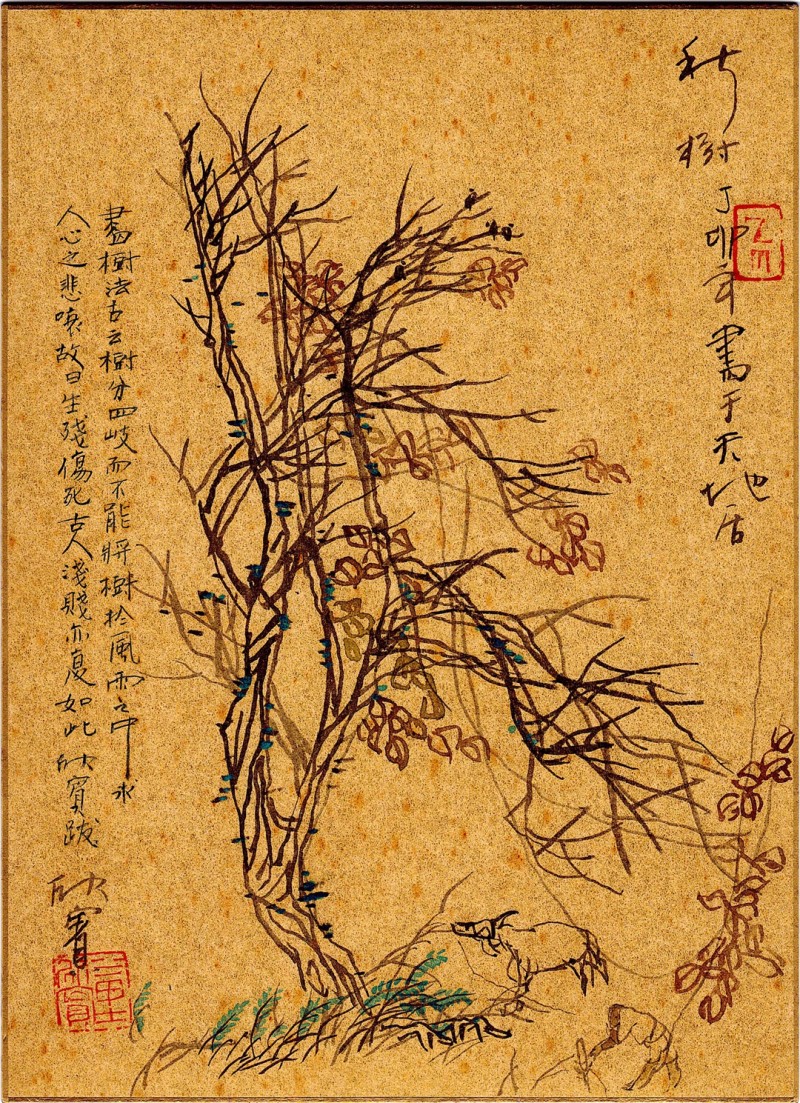 秋樹丁卯年畫于天地居
畫樹法古云樹分四歧而不能將樹於風雨之中求
人心之悲哀故曰生殘傷死古人淺賤亦復如此欣賓跋
欣賓